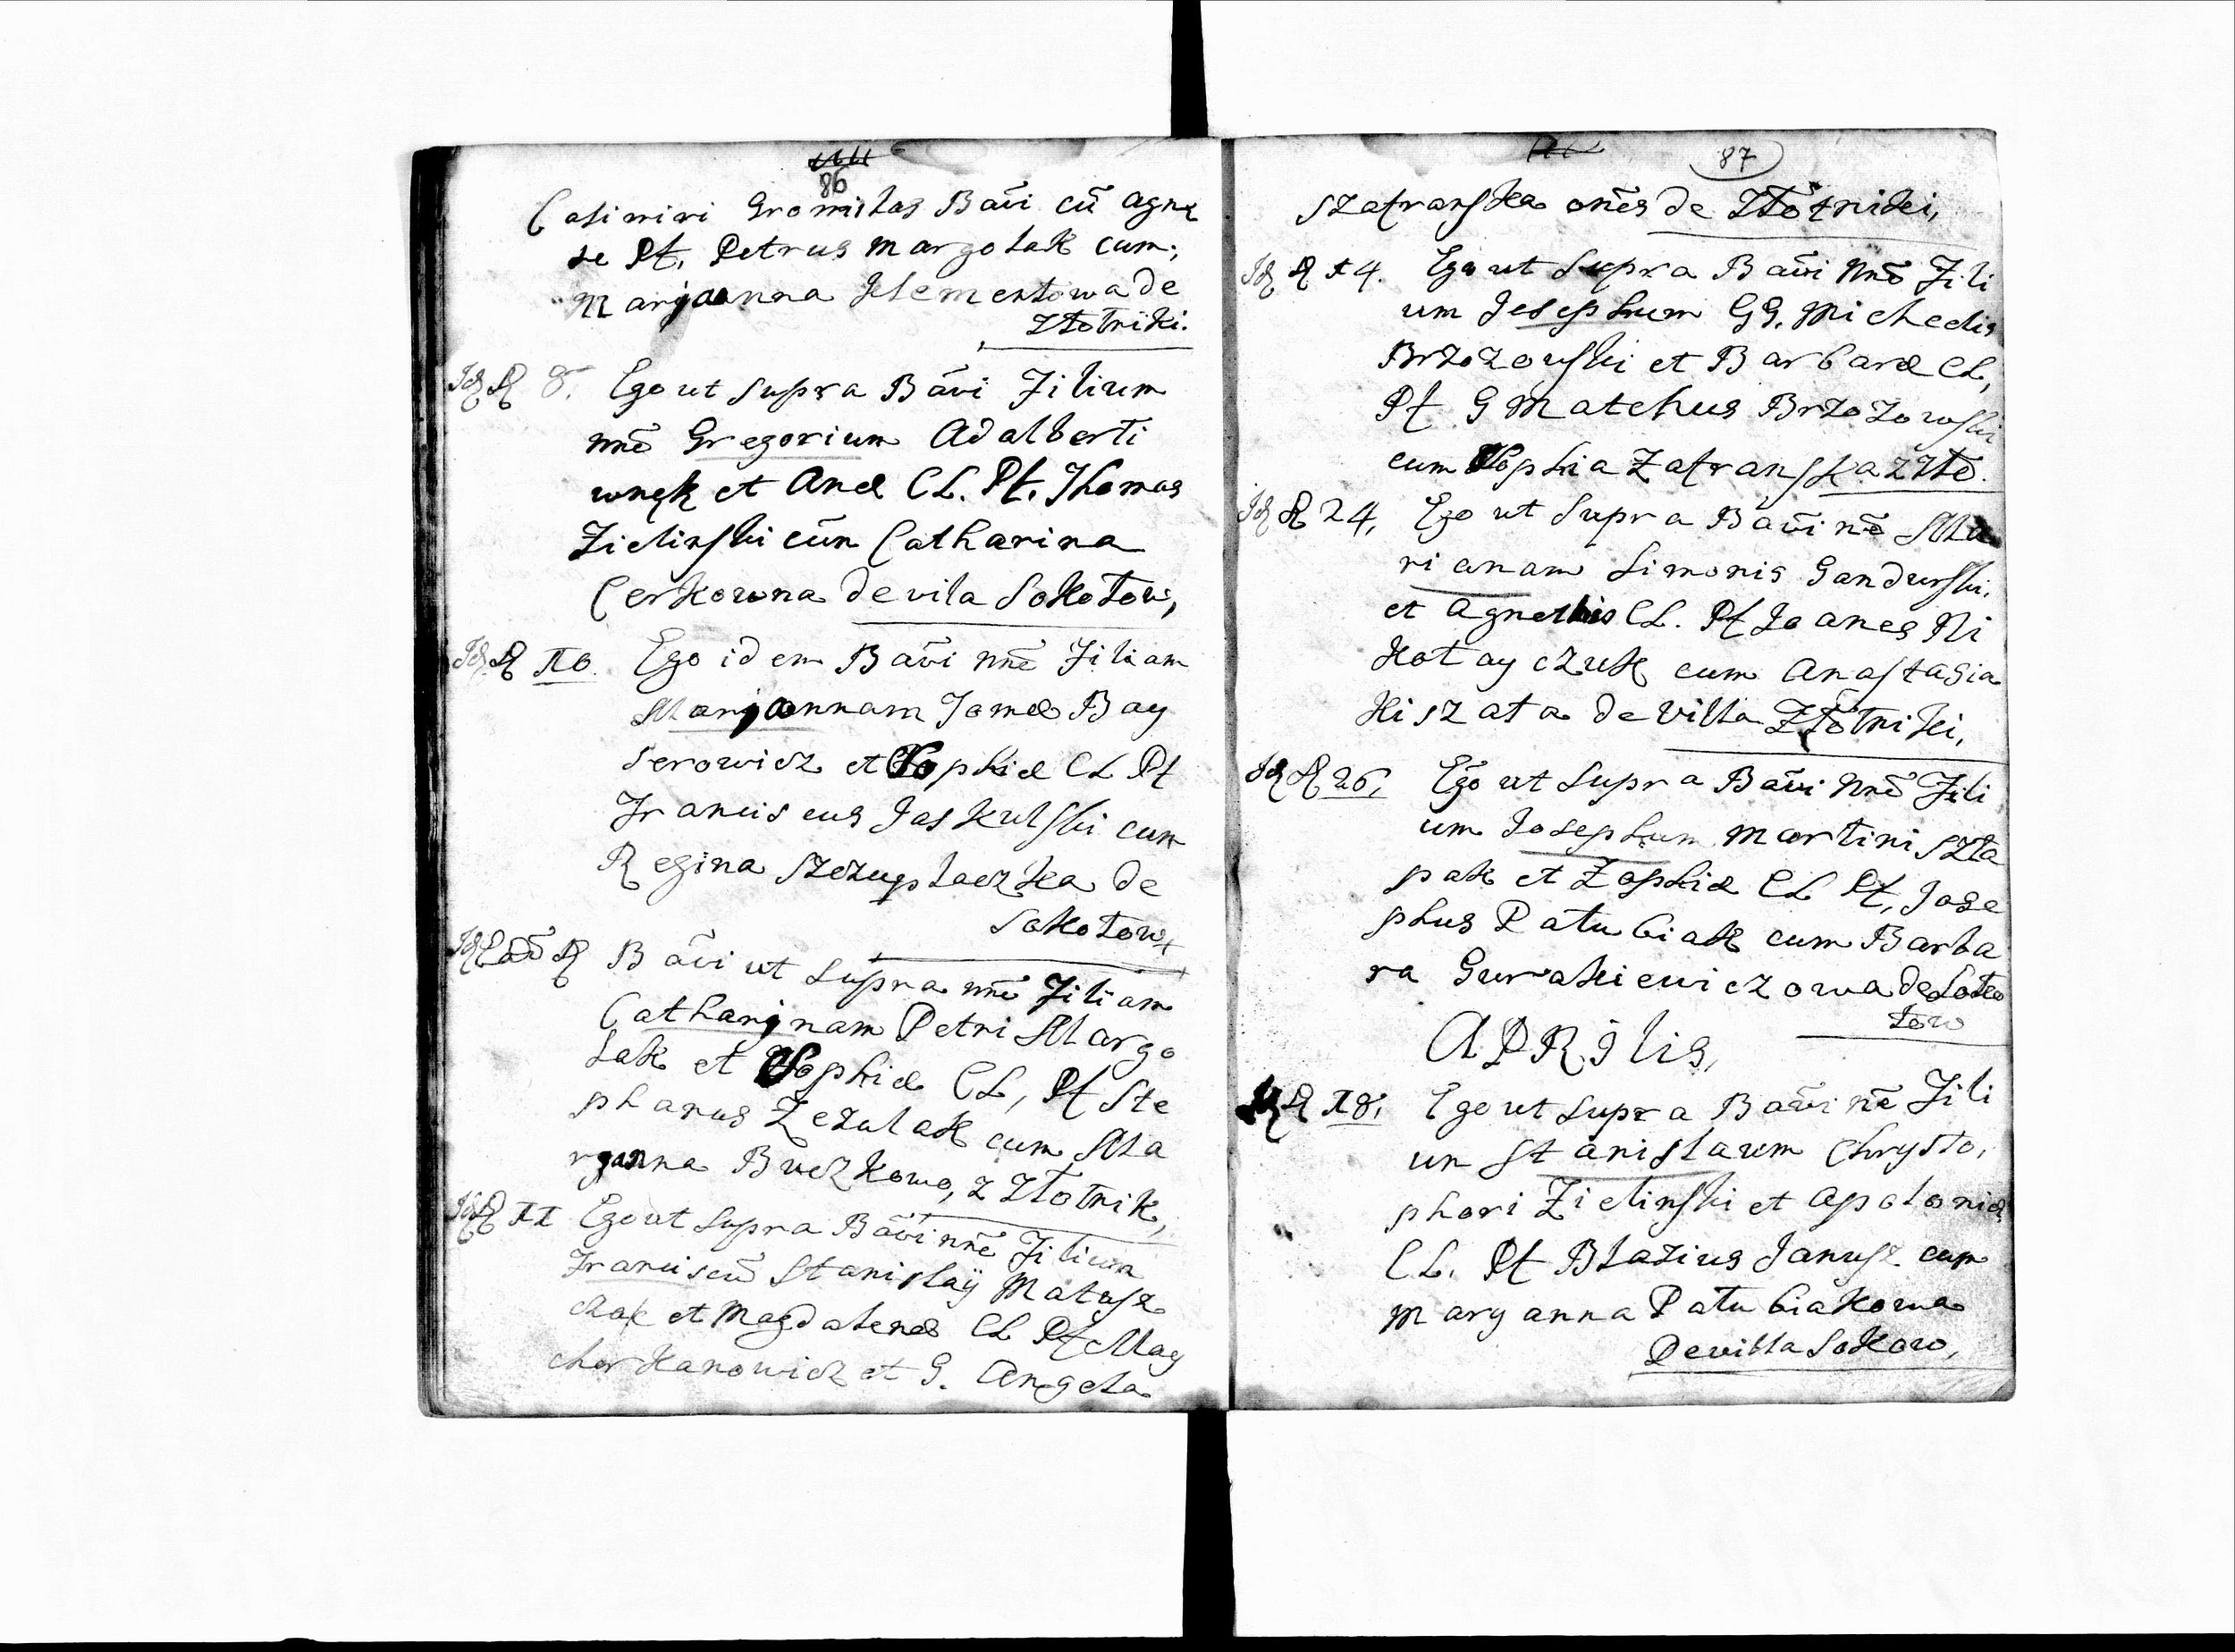 86
Casimiri Gromitas Bãvi cũ Agne
te Pt. Petrus Margolak cum;
Maryanna Klementowa de
Złotniki.
8. Ego ut supra Bãvi Filium
nnẽ Gregorium Adalberti
wnęk et Anæ CL. Pt. Thomas
Zielinski cũm Catharina
Cerkowna de vila Sokołow,
10. Ego idem Bãvi nnẽ Filiam
Maryannam Jomæ Bay
serowicz et Sophiæ CL Pt
Franciscus Jaskulski cum
Regina Szczuplaczka de
Sokołow
Eadẽ Bãvi ut supra nnẽ Filiam
Catharinam Petri Margo
lak et Sophiæ CL, Pt Ste
phanus Zezulak cum Ma
ryanna Buczkowo, z Złotnik,
11 Ego ut supra Bãvi nnẽ Filium
Franciscũ Stanislaÿ Matusz
czak et Magdalenæ CL Pt May
cher Kanowicz et G. Angela
87
Szafranska onẽs de Złotniki,
14. Ego ut supra Bãvi nnẽ Fili
um Josephum GG. Michælis
Brzozowski et Barbaræ CL,
Pt G Matehus Brzozowski
cum Sophia Zafranska z Zło.
24, Ego ut supra Bãvi nẽ Ma
rianam Simonis Gandurski,
et Agnethis CL. Pt Joanes Ni
kołayczuk cum Anastasia
Kiszata de Villa Złotniki,
26, Ego ut supra Bãvi nnẽ Fili
um Josephum Martini Szła
pak et Zophiæ CL Pt, Jose
phus Patubiak cum Barba
ra Gurakiewiczowa de Soko
łow
APRilis,
18, Ego ut supra Bãvi nẽ Fili
um Stanislaum Chrysto,
phori Zielinski et Apoloniæ
CL. Pt Blazius Janusz cum
Maryanna Patubiakowa
De villa Sokow,